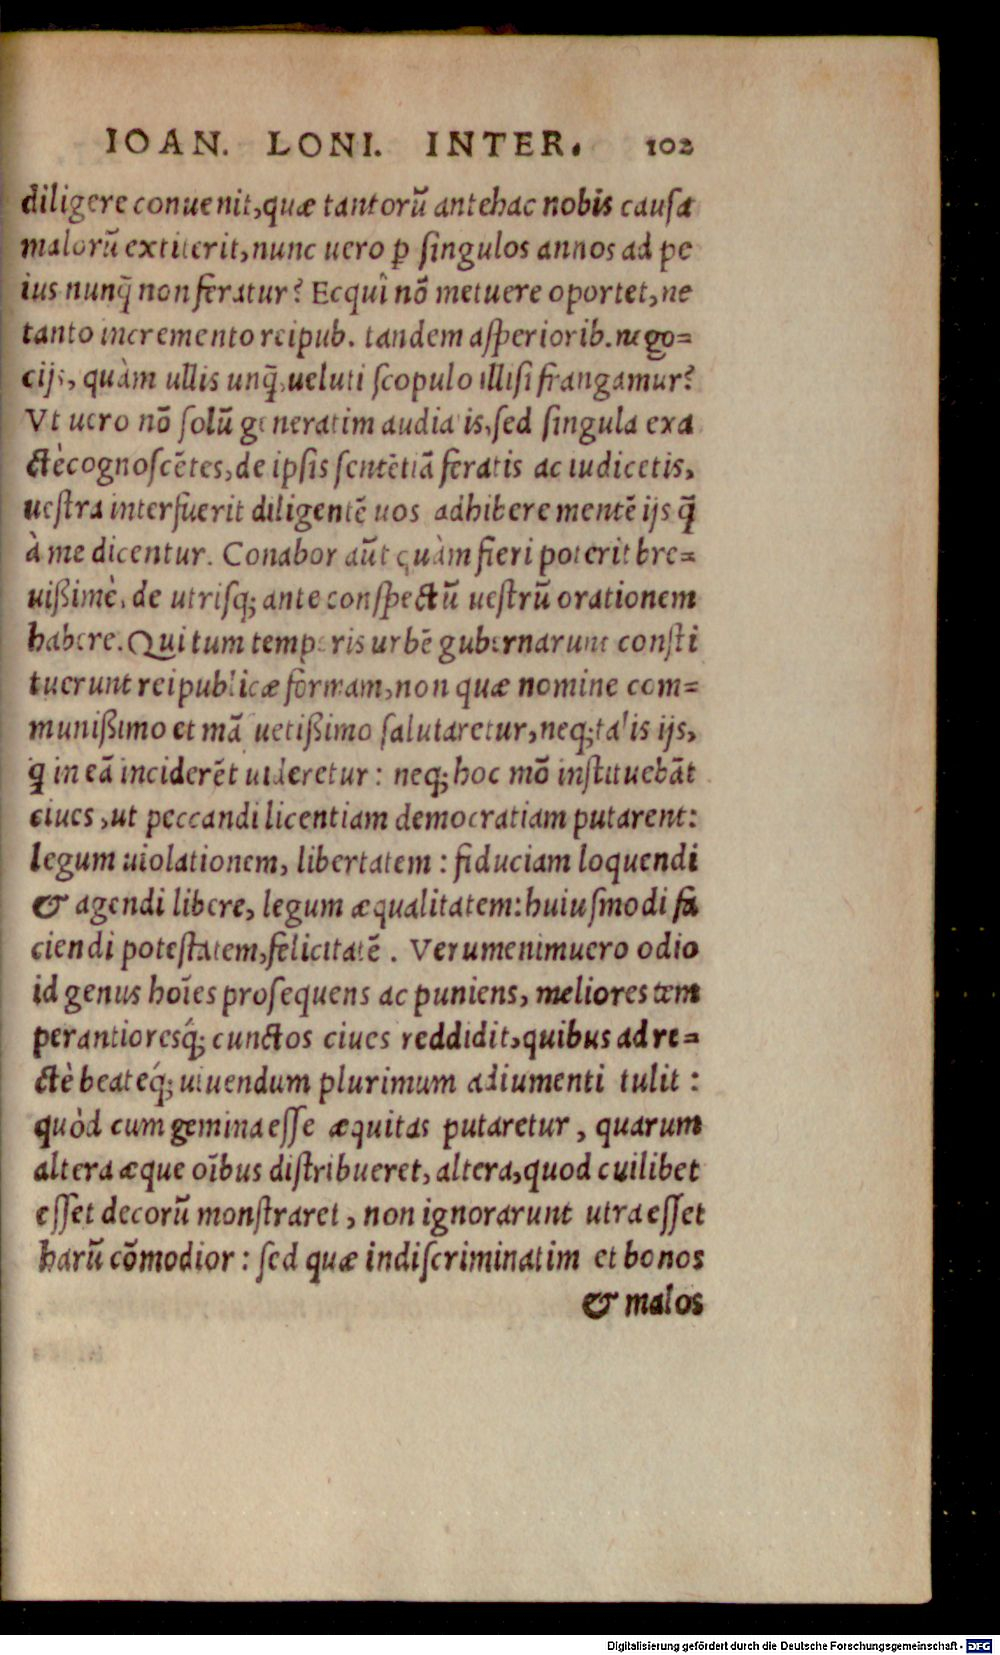 IOAN. LONI. INTER. 102
diligere conuenit,quæ tantorũ antehac nobis causa
malorũ extiterit,nunc uero ꝑ singulos annos ad pe
ius nunq̃ non feratur? Ecqui nõ metuere oportet,ne
tanto incremento reipub. tandem asperiorib. nego=
cijs, quàm ullis unq̃,ueluti scopulo illisi frangamur?
Vt uero nõ solũ generatim audiatis,sed singula exa
ctè cognoscẽtes,de ipsis sentẽtiã feratis ac iudicetis,
uestra interfuerit diligentẽ uos adhibere mentẽ ijs q̃
à me dicentur. Conabor aũt quàm fieri poterit bre=
uißimè, de utrisq; ante conspectũ uestrũ orationem
habere. Qui tum temporis urbẽ gubernarunt consti
tuerunt reipublicæ formam,non quæ nomine com=
munißimo et mãsuetißimo salutaretur,neq; talis ijs,
q in eã inciderẽt uideretur : neq; hoc mõ instituebãt
ciues ,ut peccandi licentiam democratiam putarent:
legum uiolationem, libertatem : fiduciam loquendi
& agendi libere, legum æqualitatem: huiusmodi fa
ciendi potestatem,felicitatẽ . Verumenimuero odio
id genus hoĩes prosequens ac puniens, meliores tem
perantioresq́; cunctos ciues reddidit,quibus ad re=
ctè beateq́; uiuendum plurimum adiumenti tulit :
quòd cum gemina esse æquitas putaretur , quarum
altera æque oĩbus distribueret, altera,quod cuilibet
esset decorũ monstraret , non ignorarunt utra esset
harũ cõmodior : sed quæ indiscriminatim et bonos
& malos
Digitalisierung gefördert durch die Deutsche Forschungsgemeinschaft - DFG